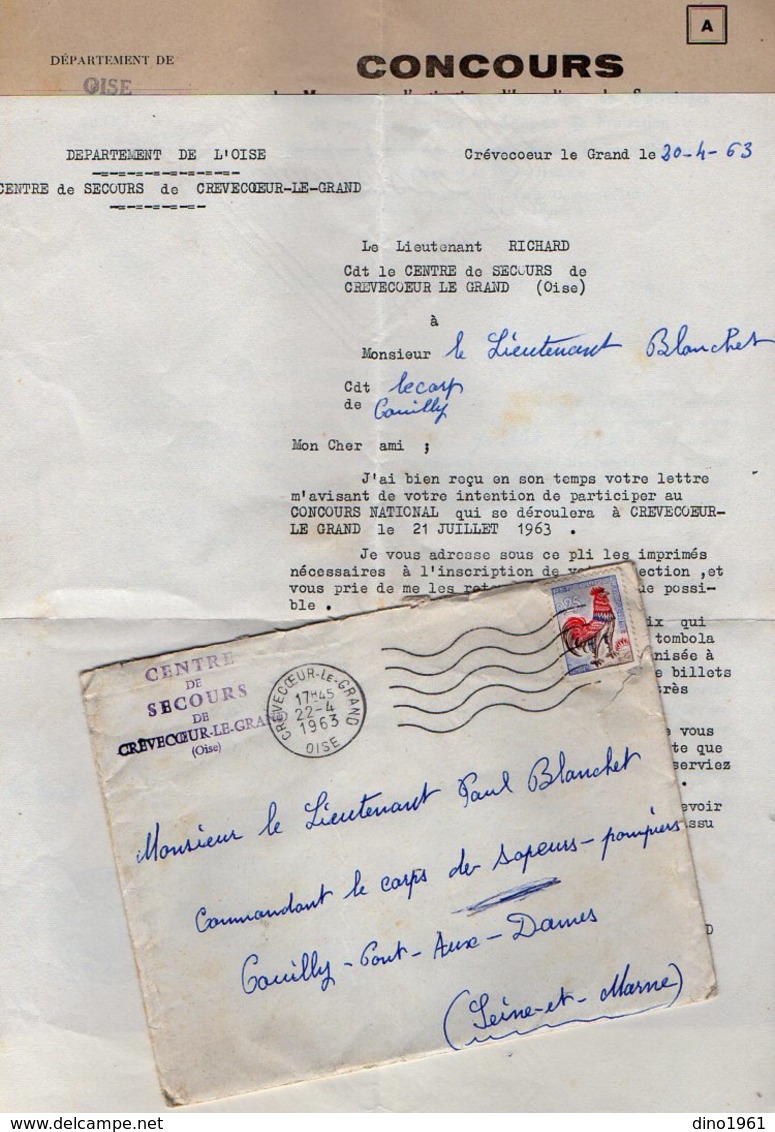 A
DÉPARTEMENT DE
OISE
CONCOURS
DEPARTEMENT DE L'OISE
Crévecoeur le Grand le 20-4-63
CENTRE de SECOURS de CREVECŒUR-LE-GRAND
Le Lieutenant RICHARD
Cdt le CENTRE de SECOURS de
CREVECOEUR LE GRAND (Oise)
à
Monsieur le Lieutenant Blanchet
Cdt le corps
de Couilly
Mon Cher ami ;
J'ai bien reçu en son temps votre lettre
m'avisant de votre intention de participer au
CONCOURS NATIONAL qui se déroulera à CREVECOEUR-
LE GRAND le 21 JUILLET 1963 .
Je vous adresse sous ce pli les imprimés
nécessaires à l'inscription de section ,et
vous prie de me les que possi-
ble .
qui
tombola
à
billets
vous
que
serviez
.
CENTRE
DE
SECOURS
DE
CRÈVECŒUR-LE-GRAND
(Oise)
CRÈVECŒUR-LE-GRAND
17H45
22-4
1963
OISE
0,25
Monsieur le Lieutenant Paul Blanchet
Commandant le corps de sapeurs-pompiers
Couilly-Pont-Aux-Dames
(Seine-et-Marne)
dino1961